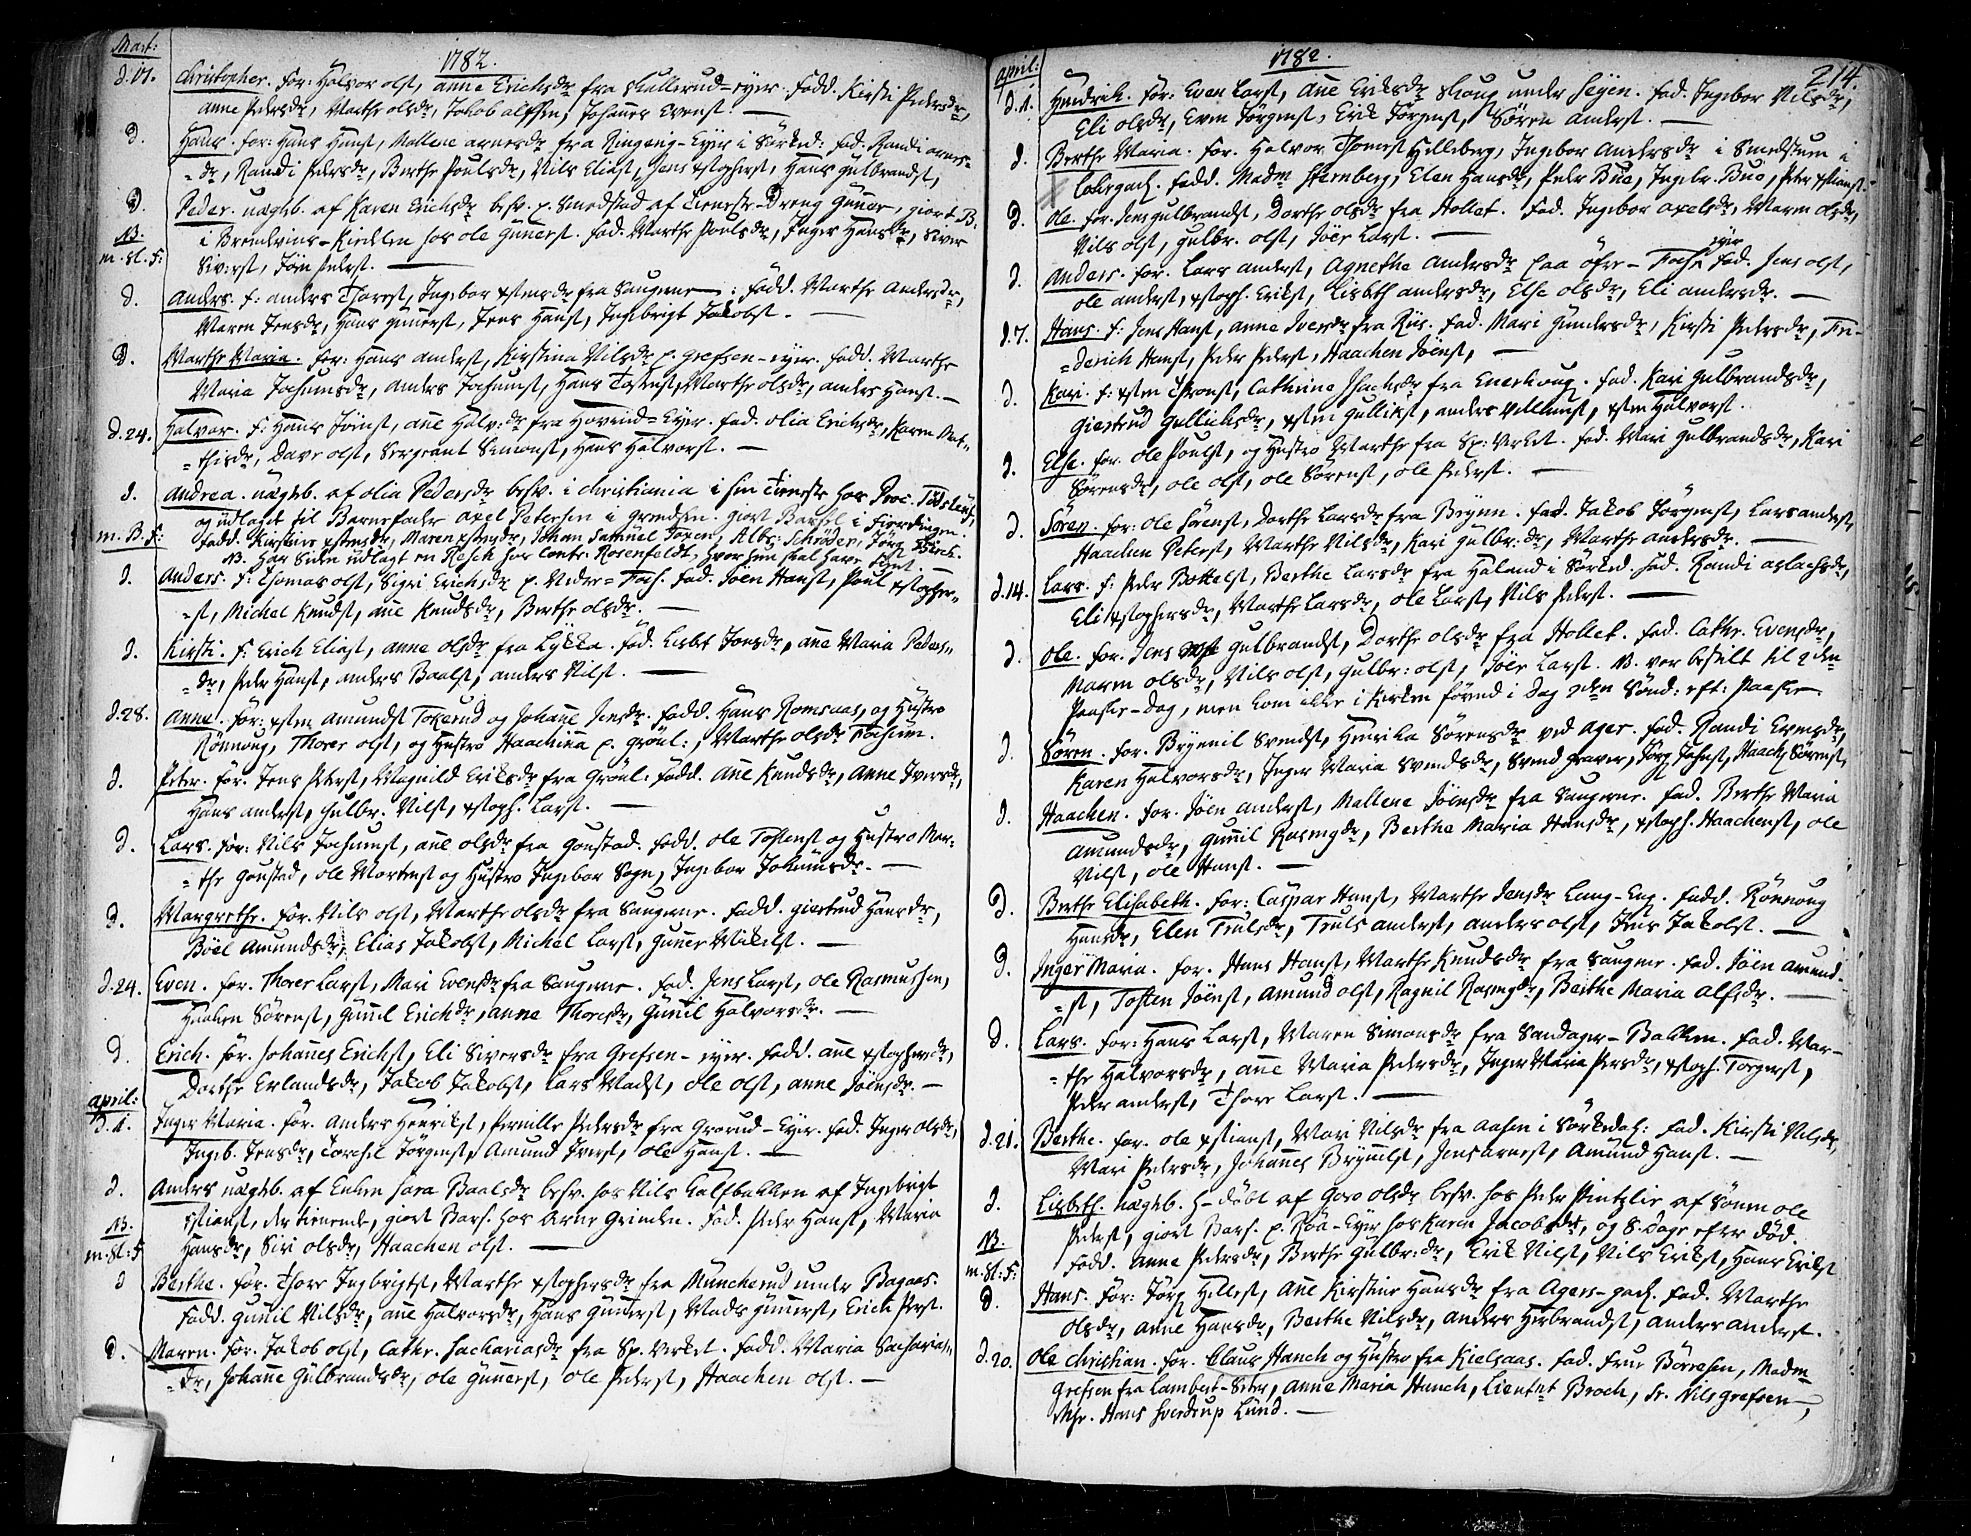 Mart:
1782.
d. 17. Christopher. for: Halvor olsl, anne Erichsdr fra Skullerud-eyer. fadd. Kirsti Pedersdr,
anne Pedersdr, Marthe olsdr, Jakob alfsen, Johannes Evensl. —
d. Hans. for: Hans Hansl, Mallene arnesdr fra Ringerig-Eyer i Sørked: fad. Randi arnes-
=dr, Randi Pedersdr, Berthe Poulsdr, Nils Eliasl, Jens xstophersl, Hans Gulbrandsl,
d. Peder. uægteb. af Karen Erichsdr besv. p. Smedstad af Tieneste-Dreng Gunner, giort B.
NB. i Brenderins-Kirkken hos ole Gunersl. fad. Marthe Poulsdr, Inger Hansdr, Siver
m. sl. f: Siversl, Jøen Pedersl. —
d. Anders. f: anders Thoresl, Ingebor xstensdr fra Saugerne: fadd. Marthe Andersdr,
Maren Jensdr, Hans Gunersl, Jens Hansl, Ingebrigt Jakobsl. —
d. Marthe Maria. for: Hans andersl, Kirstina Nilsdr p. Grefsen-eyer. fadd. Marthe
Maria Jochumsdr, anders Jochumsl, Hans Tostensl, Marthe olsdr, anders Hansl. —
d. 24. Halvor. f: Hans Jøensl, ane Halv:dr fra Hovind-Eyer. fad. olia Erichsdr, Karen Mat-
=thisdr, Dave olsl, Sergeant Simonsl, Hans Halvorsl. —
d. Andrea. uægteb. af olia Pedersdr besv. i Christiania i sin Tieneste hos Proc. Tødsleuf,
og udlagt til Barnefader axel Petersen i Grendsen. giort Barsel i Fierdingen.
m. B. f: fadd. Kirstine xstensdr, Maren xstensdr, Johan Samuel Joxen, Albr: Schrøder, Jørg. Birch.
NB. Har siden udlagt en Resch hos Contr. Rosenfeldt, hvor hun skal have tient. —
d. Anders. f: Thomas olsl, Sigri Erichsdr p. Neder=Foss. fad. Jøen Hansl, Poul xstopher-
=sl, Michel Knudsl, ane Knudsdr, Berthe olsdr. —
d. Kirsti. f: Erich Eliasl, anne olsdr fra Lykka. fad. Lisbet Jonsdr, ane Maria Peders-
=dr, Peder Hansl, anders Baalsl, anders Nilsl. —
d. 28. Anne. for: xsten Amundsl Tokerud og Johanne Jensdr. fadd. Hans Romsaas, og Hustro
Rønnoug, Thorer olsl, og Hustro Haachina p. Grøul:, Marthe olsdr Fossum.
d. Peter. for. Jens Pedersl, Magnild Eriksdr fra Grøul. fadd. Ane Knudsdr, Anne Iversdr,
Hans andersl, Gulbr. Nilsl, xstoph. Larsl. —
d. Lars. for: Nils Jochumsl, ane olsdr fra Goustad. fadd. ole Tostensl og Hustro Mar-
=the Goustad, ole Mortensl og Hustro Ingebor Sogn, Ingebor Johansdr. —
d. Margrethe. for. Nils olsl, Marthe olsdr fra Saugerne. fadd. Giertrud Hansdr,
Boel Amundsdr, Elias Jakobsl, Michel Larsl, Guner Mikelsl. —
d. 24. Even. for. Thorer Larsl, Mari Evensdr fra Saugerne. fad. Jens Larsl, ole Rasmussen,
Haaken Sørensl, Gunil Erichdr, anne Thoresdr, Gunil Halvorsdr. —
d. Erich. for. Johannes Erichsl, Eli Siversdr fra Grefsen-eyer. fadd. ane xstophersdr,
Dorthe Erlandsdr, Jakob Jakobsl, Lars Madsl, ole olsl, anne Jøensdr. —
april:
d. 1. Inger Maria. for. Anders Henriksl, Pernille Pedersdr fra Grorud-Eyer. fad. Inger olsdr,
Ingeb. Jensdr, Torchel Jørgensl, Amund Iversl, ole Hansl. —
d. Anders uægteb. af Enken Sara Baalsdr besv. hos Nils Kalfbakken af Ingebrigt
NB. xstiansl, der tienende, giort Bars. hos Arne Grinden. fad. Peder Hansl, Maria
m. sl: f Hansdr, Siri olsdr, Haachen olsl. —
d Berthe. for. Thore Ingbrigtsl, Marthe xstophersdr fra Munkerud under Bagaas.
fadd. Gunil Nilsdr, ane Halvorsdr, Hans Gunersl, Mads Gunersl, Erich Persl.
d. Maren. for. Jakob olsl, Cathr. Sachariasdr fra Sp. Verket. fadd. Maria Sacharias-
=dr, Johane Gulbrandsdr, ole Gunersl, ole Pedersl, Haachen olsl. —
april:
1782.
214
d. 1. Hendrik. for: Even Larsl, ane Eriksdr Skoug under Seyen. fad. Ingebor Nilsdr,
Eli olsdr, Even Jørgensl, Erik Jørgensl, Søren Andersl. —
d. Berthe Maria. for. Halvor Thoresl Hilleberg, Ingebor Andersdr i Smedstuen i
Lohrgaď. fadd. Madm Sternberg, Elen Hansdr, Peder Bue, Ingebr. Buo, Peter xstiansl.
d. Ole. for. Jens Gulbrandsl, Dorthe olsdr fra Hollet. fad. Ingebor Axelsdr, Maren olsdr,
Nils olsl, Gulbr. olsl, Joer Larsl. —
d. Anders. for. Lars Andersl, Agnethe Andersdr paa øfre-Foss eyer fad. Jens olsl,
ole andersl, xstoph. Eriksl, Lisbeth andersdr, Else olsdr, Eli andersdr. —
d. 7. Hans. f: Jens Hansl, anne Iversdr fra Riis. fad. Mari Gundersdr, Kirsti Pedersdr, Fri-
=derich Hansl, Peder Pedersl, Haachen Jøensl, —
d. Kari. f: xsten Thronsl, Cathrine Isachsdr fra Enerhoug. fad. Kari Gulbrandsdr,
Giertrud Gullichsdr, xsten Gulliksl, anders Villumsl, xsten Halvorsl.
d. Else. for. ole Poulsl, og Hustro Marthe fra Sp: Verket. fad. Mari Gulbrandsdr, Kari
Sørensdr, ole olsl, ole Sørensl, ole Pedersl. —
d. Søren. for: ole Sørensl, Dorthe Larsdr fra Brynn. fad. Jakob Jørgensl, Lars andersl,
Haachen Petersl, Marthe Nilsdr, Kari Gulbr:dr, Marthe andersdr. —
d. 14. Lars. f: Peder Bottelsl, Berthe Larsdr fra Haland i Sørked. fad. Randi aslachsdr,
Eli xstophersdr, Marthe Larsdr, ole Larsl, Nils Pedersl. —
d. Ole. for. Jens Gulbrandsl, Dorthe olsdr fra Hollet. fad. Cathr. Evensdr,
Maren olsdr, Nils olsl, Gulbr: olsl, Joer Larsl. NB. var bestilt til 2den
Paaske-Dag, men kom ikke i Kirken førend i Dag 2den Sønd: eft: Paaske.
d. Søren. for. Brynnil Svendsl, Henrika Sørensdr ved Ager. fad. Randi Evensdr,
Karen Halvorsdr, Inger Maria Svendsdr, Svend Graver, Jørg Johnsl, Haach Sørensl,
d. Haachen. for. Jøen Andersl, Mallene Jøensdr fra Saugerne. fad. Berthe Maria
Amundsdr, Gunil Rasmsdr, Berthe Maria Hansdr, xstoph. Haachensl, ole
Nilsl, ole Hansl. —
d. Berthe Elisabeth. for: Caspar Hansl, Marthe Jensdr Lang-Eng. fadd. Rønnoug
Hansdr, Elen Trulsdr, Truls andersl, anders olsl, Jens Jakobsl. —
d. Inger Maria. for. Hans Hansl, Marthe Knudsdr fra Saugerne. fad. Jøen Amund-
=sl, Tosten Jøensl, Amund olsl, Ragnil Rasmsdr, Berthe Maria Alfsdr. —
d. Lars. for: Hans Larsl, Maren Simonsdr fra Sandager-Bakken. fad. Mar-
=the Halvorsdr, ane Maria Pedersdr, Inger Maria Persdr, xstoph. Torgersl,
Peder andersl, Thore Larsl. —
d. 21. Berthe. for. ole xstiansl, Mari Nilsdr fra Aasen i Sørkedah: fad. Kirsti Nilsdr,
Mari Pedersdr, Johannes Brynnilsl, Jens arnesl, Amund Hansl. —
d. Lisbeth. uægteb. H-døbt af Goro olsdr besv. hos Peder Pintzlie af Sønnen ole
NB. Pedersl, giort Bars. p. Røa-Eyer hos Karen Jacobsdr, og 8 Dage efter død.
m. sl: f: fadd. Anne Pedersdr, Berthe Gulbr:dr, Erik Nilsl, Nils Eriksl, Hans Eriksl
d. Hans. for: Jørg Hillesl, Ane Kirstine Hansdr fra Agers-gaď. fad. Marthe
olsdr, Anne Hansdr, Berthe Nilsdr, Anders Herbrandsl, anders andersl.
d. 20. Ole Christian. for. Claus Hanch og Hustro fra Kielsaas. fad. Frue Børresen, Madm
Grefsen fra Lambert-Seter, Anne Maria Hanch, Lieutnt Broch, Sr. Nils Grefsen,
Mr. Hans Sverdrup Lund. —